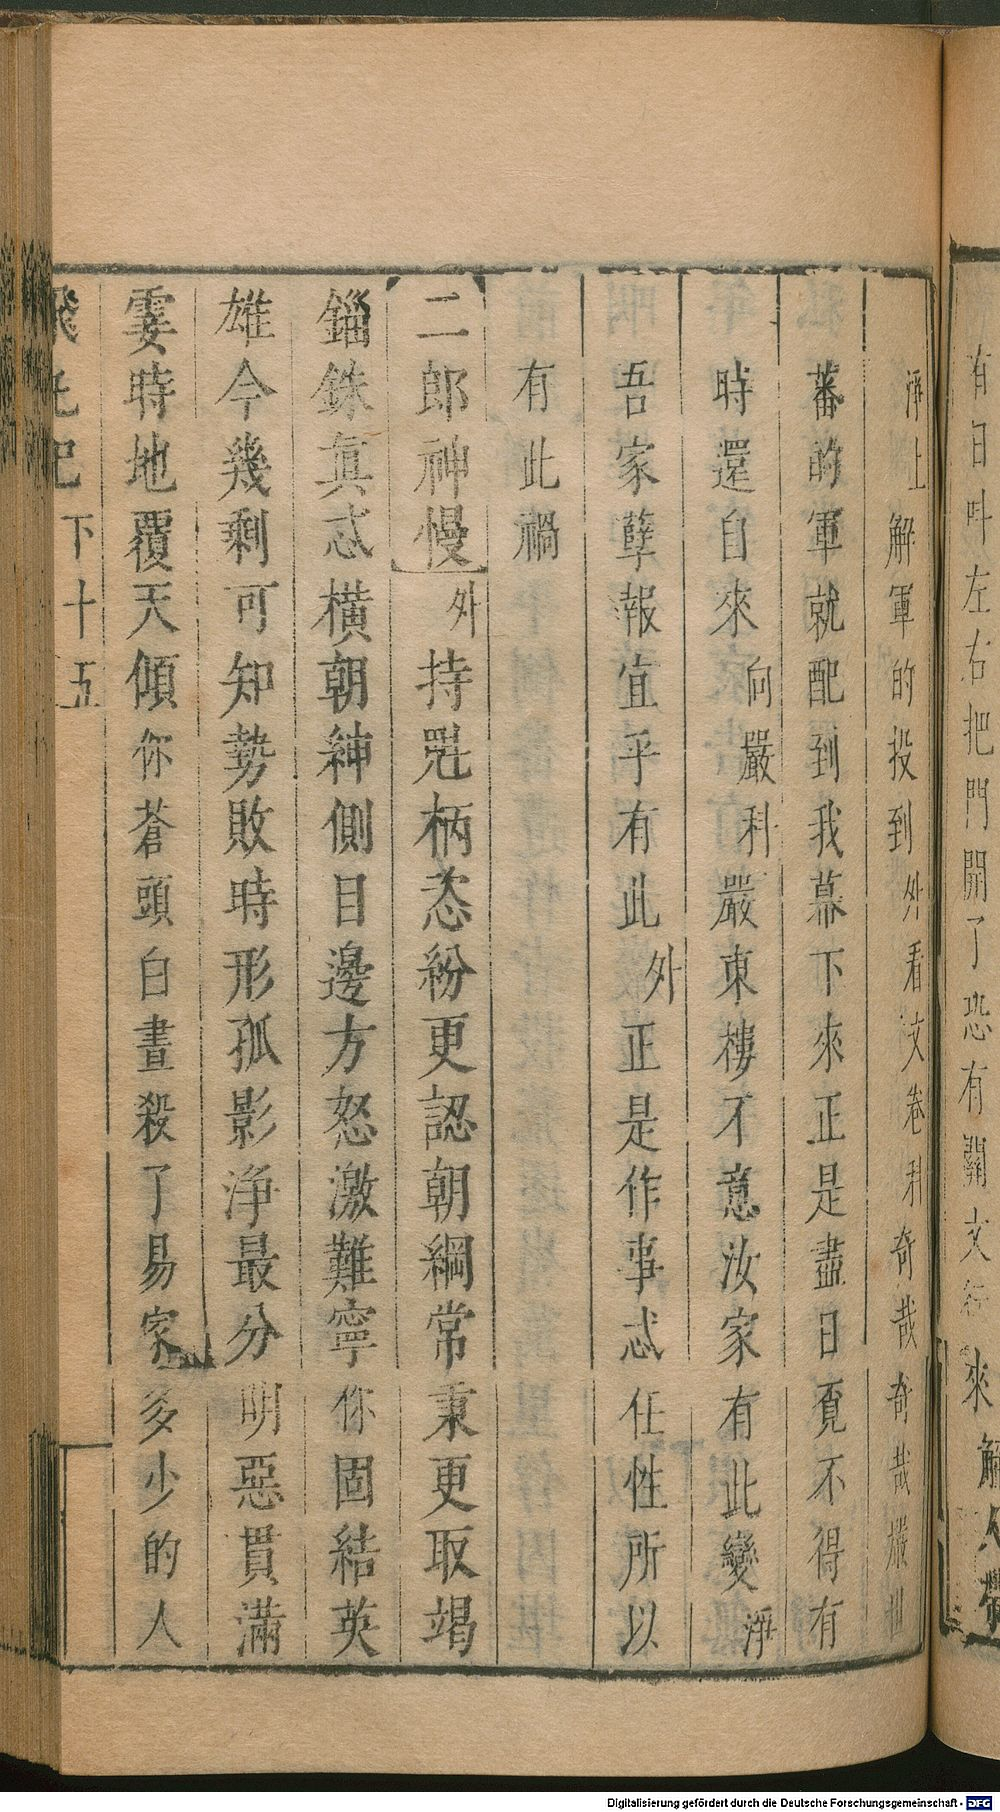 有日叶左右把門開了恐有關文行 來
淨上解軍的投到外看文卷科奇哉奇哉嚴世
蕃的軍就配到我幕下來正是盡日覓不得有
時還自來向嚴科嚴東樓不意汝家有此變淨
吾家孽報宜乎有此外正是作事忒任性所以
有此禍
二郎神慢外持兇柄恣紛更認朝綱常秉更取竭
錙銖真忒橫朝紳側目邊方怒激難寧你固結英
雄今幾剩可知勢敗時形孤影淨最分明惡貫滿
霎時地覆天傾你蒼頭白晝殺了易家多少的人
飛丸記 下 十五
Digitalisierung gefördert durch die Deutsche Forschungsgemeinschaft - DFG